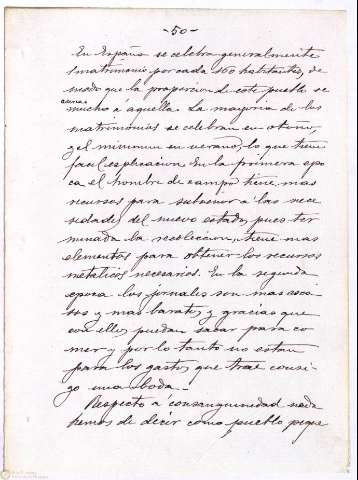 -50-
En España se celebra generalmente
1 matrimonio por cada 160 habitantes, de
modo que la proporcion de este pueblo se
acerca mucho á aquella. La mayoria de los
matrimonios se celebran en otoño,
y el minimum en verano, lo que tiene
facil esplicacion. En la primera epo
ca el hombre de campo tiene mas
recursos para subvenir á las nece
sidades del nuevo estado, pues ter
minada la recoleccion, tiene mas
elementos para obtener los recursos
metalicos necesarios. En la segunda
epoca los jornales son mas esca
sos y mas baratos y gracias que
con ellos puedan sacar para co
mer y por lo tanto no estan
para los gastos que trae consi
go una boda.-
Respecto á consanguinedad nada
hemos de decir como pueblo peque